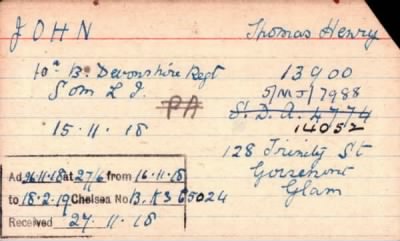 JOHN Thomas Henry
10th B. Devonshire Regt 13900
Som L I. 5/MJ/7988
PA S.D.A. 4774
15.11.18 14052
128 Trinity St
Gorseinon
Glam
Ad 26.11.18 at 27/6 from 16.11.18
to 18.2.19 Chelsea No B.K3 65024
Received 27.11.18